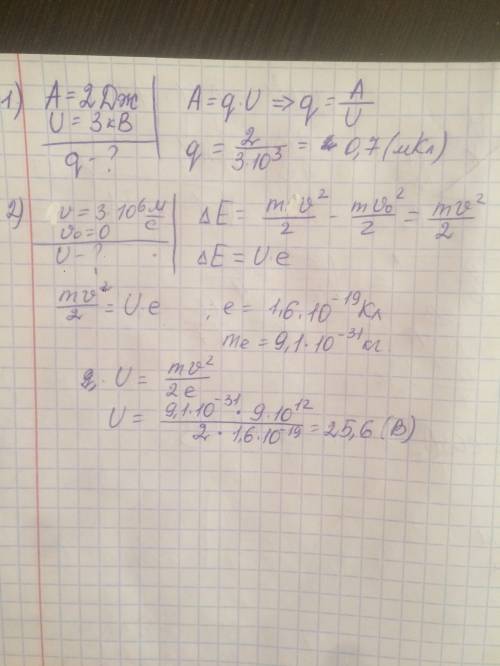 1) A = 2 Дж
U = 3 кВ
q - ?
A = q · U => q = A/U
q = 2/(3·10³) = 0,7 (мКл)
2) v = 3·10⁶ м/с
v₀ = 0
U - ?
ΔE = mv²/2 - mv₀²/2 = mv²/2
ΔE = U·e
mv²/2 = U·e ; e = 1,6·10⁻¹⁹ Кл
mₑ = 9,1·10⁻³¹ кг.
U = mv²/2e
U = (9,1·10⁻³¹ · 9·10¹²)/(2 · 1,6·10⁻¹⁹) = 25,6 (В)